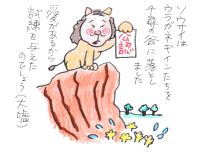 ソウサイは
ウラガネギインたちを
千尋の谷に落とし
ました
愛があるから
試練を与えた
のでしょう(大嘘)
公認